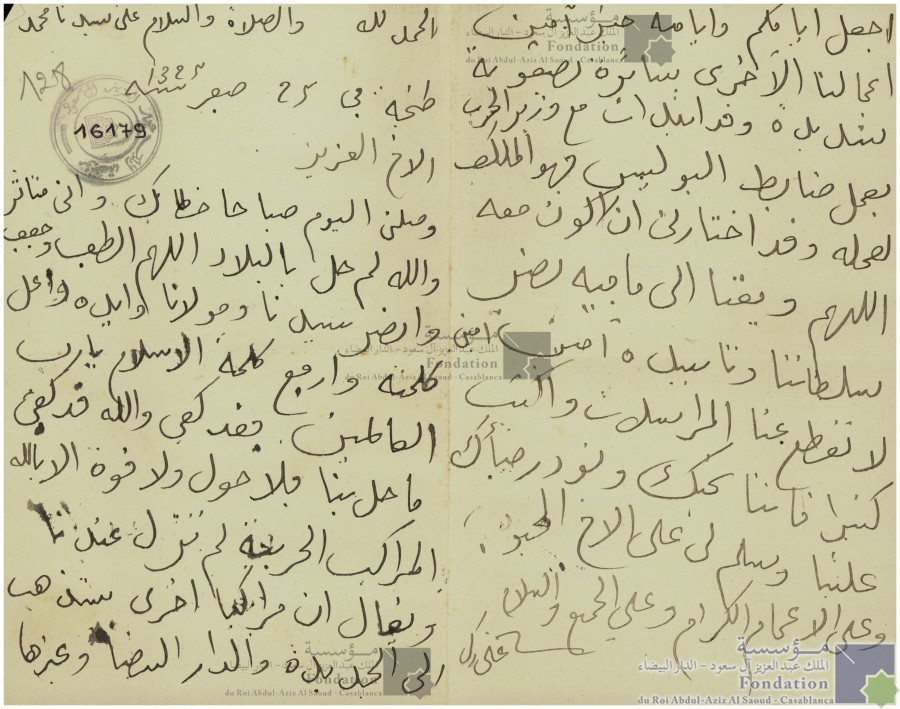 الحمد لله والصلاة والسلام على سيدنا محمد
128
16179
طنجة في 25 صفر سنة 1325
الاخ العزيز
وصلني اليوم صباحا خطابك واني متاثر
والله لم حل بالبلاد اللهم الطف وخفف
وانصر سيدنا ومولانا وايده واعل
كلمته وارفع كلمة الاسلام يا رب
العالمين فقد كفى والله قد كفى
ما حل بنا فلا حول ولا قوة الا بالله
المراكب الحربية لم تزل عندنا
ويقال ان مراكبا اخرى ستذهب
الى والدار البيضا وغيرها
اجعل ايامكم وايامه
اعمالنا الاخرى سائرة بصعوبة
شديدة وقد اتفقت مع وزير الحرب
بعمل ضابط البوليس فهو المكلف
لعمله وقد اختارني ان اكون معه
اللهم وفقنا الى ما فيه نصر
سلطاننا وتاييده امين امين
لا تقطع عنا المراسلات واكتب
كثيرا فاننا نحبك ونود رضاك
علينا وسلم لي على الاخ المحبوب
وعلى الاعمام الكرام وعلى الجميع والسلام
مؤسسة
الملك عبد العزيز آل سعود - الدار البيضاء
Fondation
du Roi Abdul-Aziz Al Saoud - Casablanca
مؤسسة
الملك عبد العزيز آل سعود - الدار البيضاء
Fondation
du Roi Abdul-Aziz Al Saoud - Casablanca
مؤسسة
الملك عبد العزيز آل سعود - الدار البيضاء
Fondation
du Roi Abdul-Aziz Al Saoud - Casablanca
مؤسسة
الملك عبد العزيز آل سعود - الدار البيضاء
Fondation
du Roi Abdul-Aziz Al Saoud - Casablanca